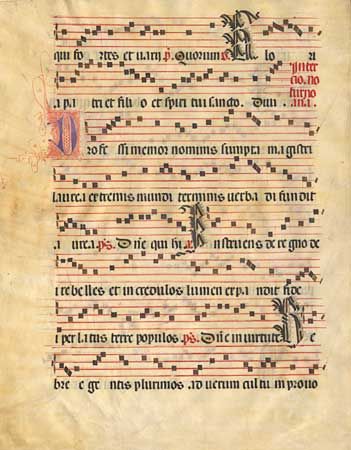 qui fo rtes et uarii ps. Quorum R lo ri
In ter
cio. no
turno
a.na.
a pa tri et fili o et spiri tui sancto. Dum
Pro fe ssi memor nominis sumpta magistri
aurea extremis mundi terminis uerba di fun dit
aurea. ps. Dne qui hi a. Instruens de regno de
i rebelles et in credulos lumen expandit fide
i per latus terre populos. ps. Dne in uirtute He
bre e gentis plurimos ad uerum cultum prouo